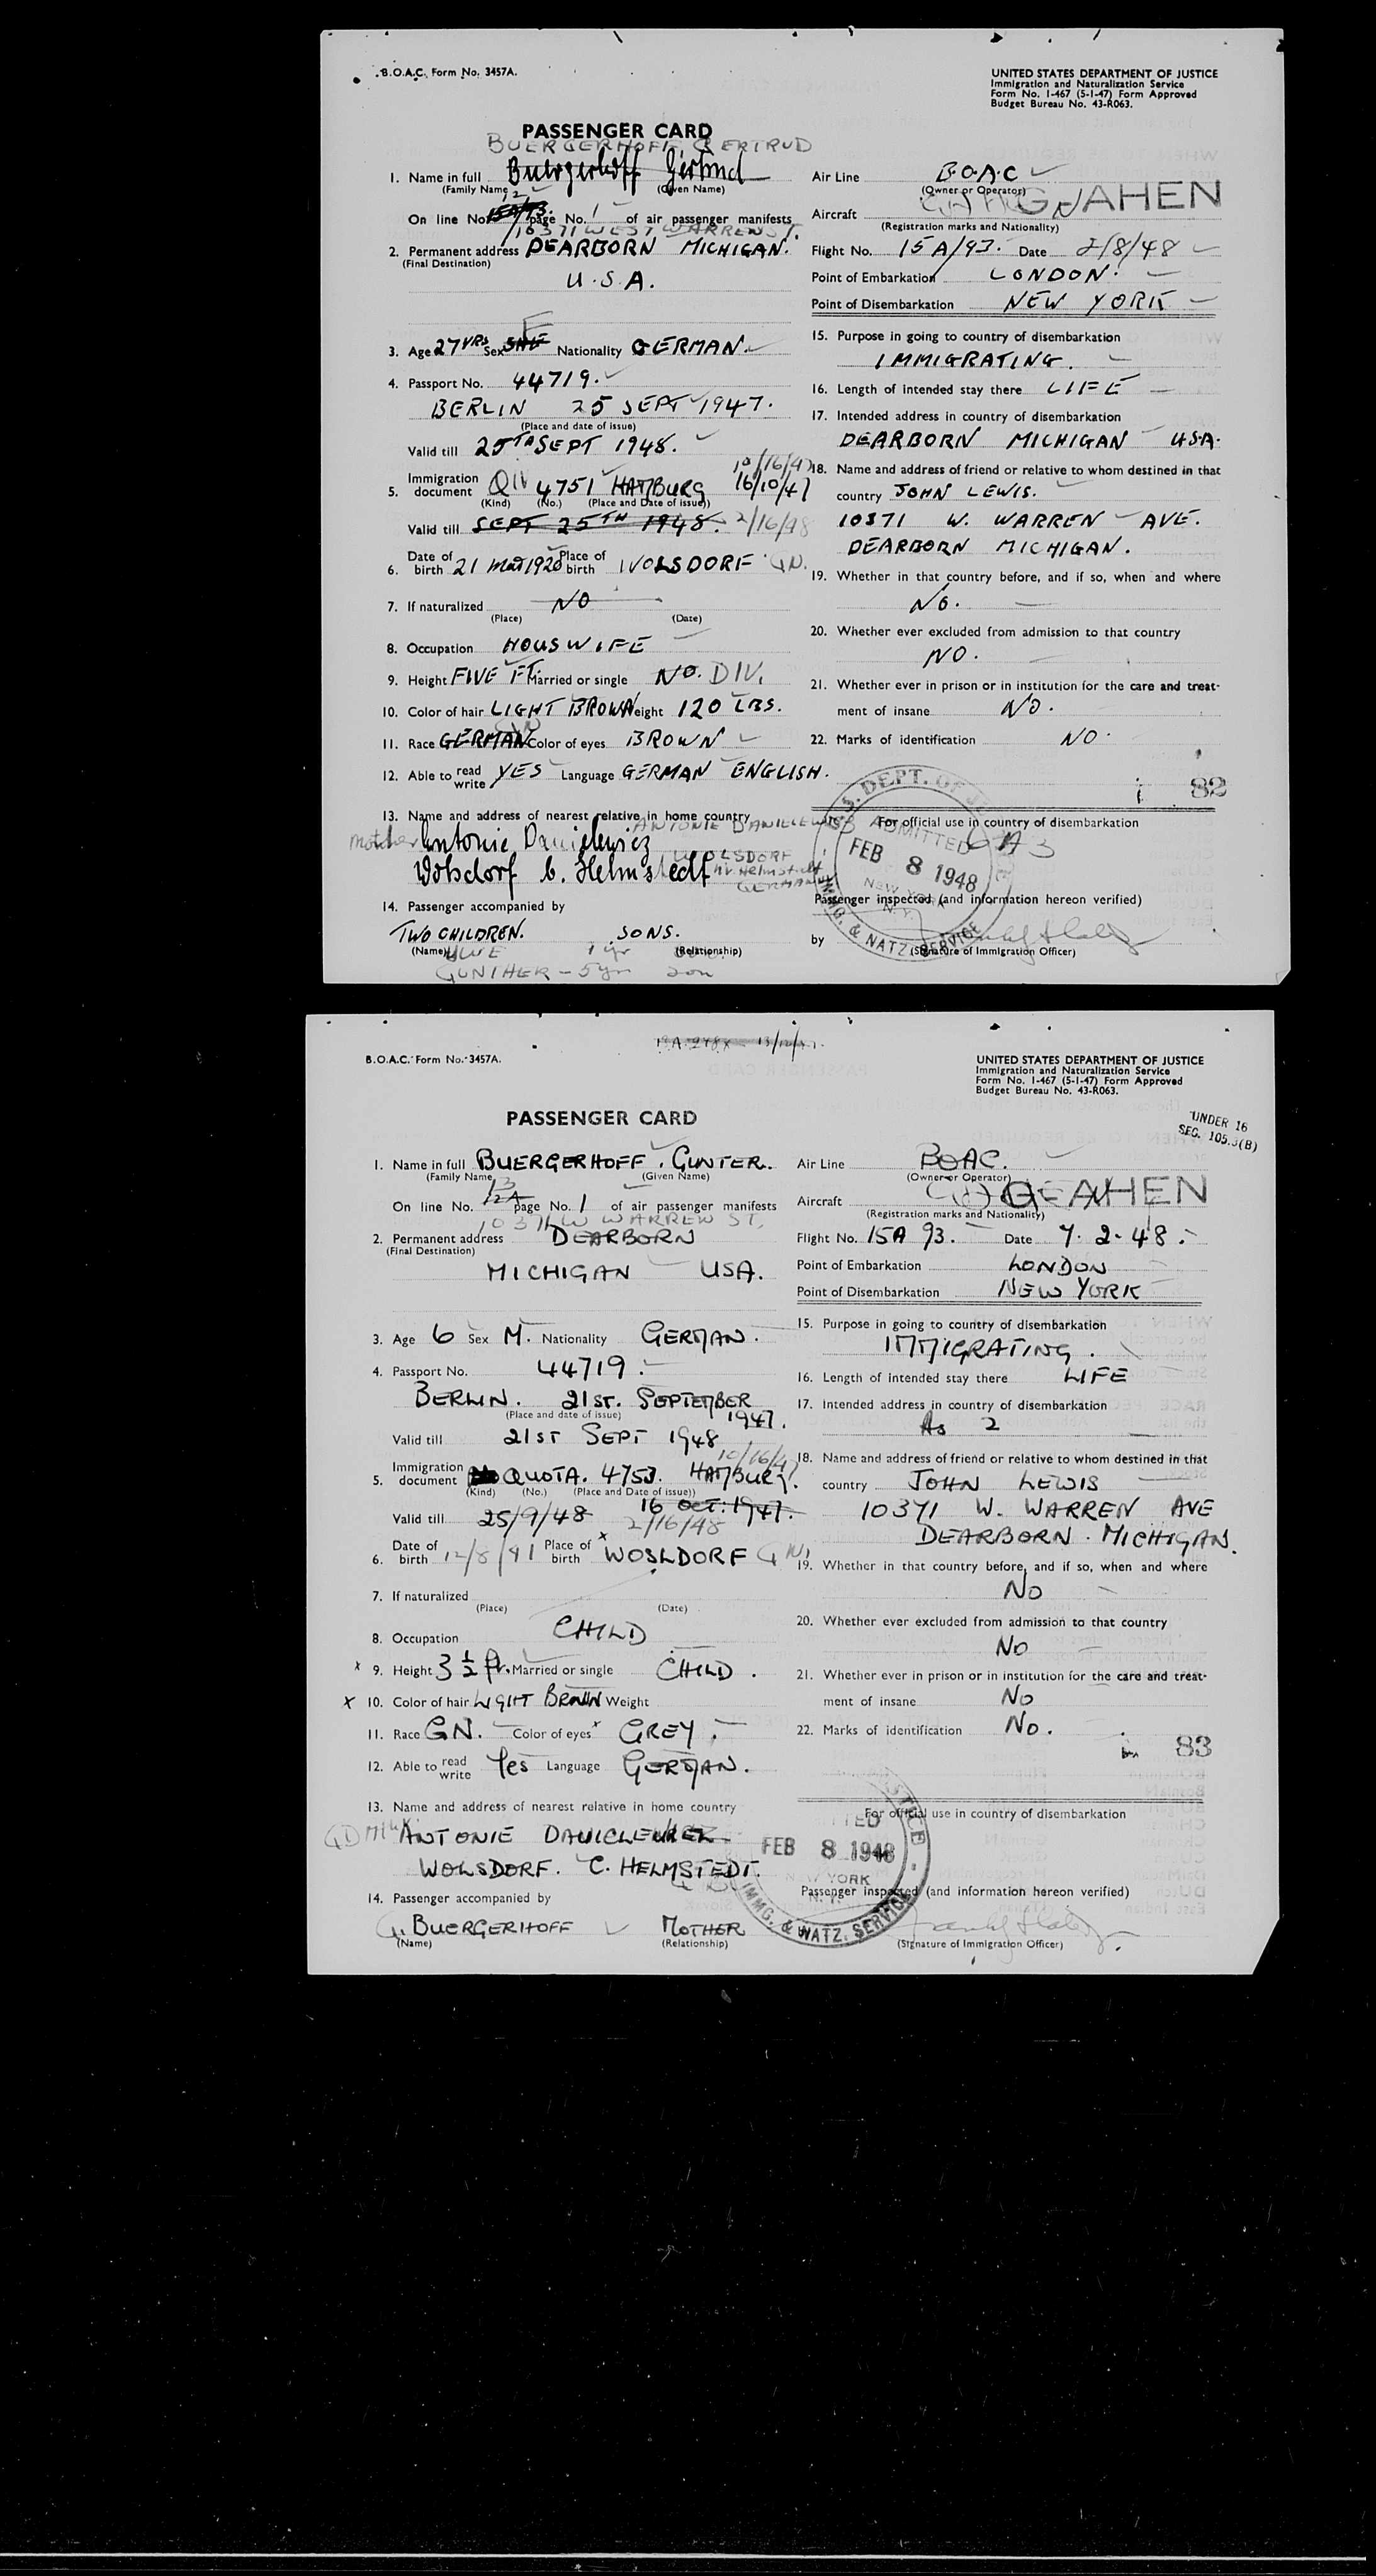 B.O.A.C. Form No. 3457A.
UNITED STATES DEPARTMENT OF JUSTICE
Immigration and Naturalization Service
Form No. I-467 (5-1-47) Form Approved
Budget Bureau No. 43-R063.
PASSENGER CARD
BUERGERHOFF GERTRUD
1. Name in full Buergerhoff Gertrud
(Family Name) (Given Name)
12
On line No. page No. 1 of air passenger manifests
10371 WEST WARREN ST.
2. Permanent address DEARBORN MICHIGAN.
(Final Destination)
U.S.A.
F
3. Age 27 YRS Sex SHE Nationality GERMAN.
4. Passport No. 44719.
BERLIN 25 SEPT 1947.
(Place and date of issue)
Valid till 25TH SEPT 1948.
10/16/47
5. Immigration document QIV 4751 HAMBURG 16/10/47
(Kind) (No.) (Place and Date of issue))
Valid till SEPT 25TH 1948. 2/16/48
6. Date of birth 21 1920 Place of birth WOLSDORF GN.
7. If naturalized NO
(Place) (Date)
8. Occupation HOUSWIFE
9. Height FIVE FT. Married or single NO. DIV.
10. Color of hair LIGHT BROWN Weight 120 LBS.
GN
11. Race GERMAN Color of eyes BROWN
12. Able to read write YES Language GERMAN ENGLISH.
13. Name and address of nearest relative in home country
mother Antonie Danielewicz ANTONIE
Wolsdorf b. Helmstedt WOLSDORF
nr. Helmstedt
GERMANY
14. Passenger accompanied by
TWO CHILDREN. SONS.
(Name) (Relationship)
UWE 1 yr
GUNTHER - 5 yr son
Air Line B.O.A.C
(Owner or Operator)
Aircraft G AHEN
(Registration marks and Nationality)
Flight No. 15A/93. Date 2/8/48
Point of Embarkation LONDON.
Point of Disembarkation NEW YORK
15. Purpose in going to country of disembarkation
IMMIGRATING.
16. Length of intended stay there LIFE
17. Intended address in country of disembarkation
DEARBORN MICHIGAN U.S.A.
18. Name and address of friend or relative to whom destined in that
country JOHN LEWIS.
10371 W. WARREN AVE.
DEARBORN MICHIGAN.
19. Whether in that country before, and if so, when and where
No.
20. Whether ever excluded from admission to that country
NO.
21. Whether ever in prison or in institution for the care and treat-
ment of insane No.
22. Marks of identification NO.
82
For official use in country of disembarkation
U.S. DEPT. OF JUSTICE
ADMITTED
FEB 8 1948
NEW YORK
N.Y.
IMMG. & NATZ. SERVICE
6 A 3
Passenger inspected (and information hereon verified)
by
(Signature of Immigration Officer)
B.O.A.C. Form No. 3457A.
UNITED STATES DEPARTMENT OF JUSTICE
Immigration and Naturalization Service
Form No. I-467 (5-1-47) Form Approved
Budget Bureau No. 43-R063.
UNDER 16
SEC. 105.3(B)
PASSENGER CARD
1. Name in full BUERGERHOFF. GUNTER.
(Family Name) (Given Name)
13
On line No. 12A page No. 1 of air passenger manifests
10371 W WARREN ST.
2. Permanent address DEARBORN
(Final Destination)
MICHIGAN USA.
3. Age 6 Sex M. Nationality GERMAN.
4. Passport No. 44719.
BERLIN. 21ST. SEPTEMBER
(Place and date of issue) 1947.
Valid till 21ST SEPT 1948
10/16/47
5. Immigration document QUOTA. 4753. HAMBURG.
(Kind) (No.) (Place and Date of issue))
16 OCT: 1947.
Valid till 25/9/48 2/16/48
6. Date of birth 12/8/41 Place of birth WOSLDORF GN.
7. If naturalized
(Place) (Date)
8. Occupation CHILD
x 9. Height 3 1/2 ft. Married or single CHILD.
x 10. Color of hair LIGHT BROWN Weight
11. Race GN. Color of eyes x GREY.
12. Able to read write Yes Language GERMAN.
13. Name and address of nearest relative in home country
ANTONIE
WOLSDORF. C. HELMSTEDT.
14. Passenger accompanied by
G. BUERGERHOFF MOTHER
(Name) (Relationship)
Air Line BOAC.
(Owner or Operator)
Aircraft G AHEN
(Registration marks and Nationality)
Flight No. 15A 93. Date 7.2.48.
Point of Embarkation LONDON
Point of Disembarkation NEW YORK
15. Purpose in going to country of disembarkation
IMMIGRATING.
16. Length of intended stay there LIFE
17. Intended address in country of disembarkation
As 2
18. Name and address of friend or relative to whom destined in that
country JOHN LEWIS
10371 W. WARREN AVE
DEARBORN. MICHIGAN.
19. Whether in that country before, and if so, when and where
No
20. Whether ever excluded from admission to that country
No
21. Whether ever in prison or in institution for the care and treat-
ment of insane No
22. Marks of identification No.
83
For official use in country of disembarkation
FEB 8 1948
NEW YORK
IMMG. & NATZ. SERVICE
Passenger inspected (and information hereon verified)
(Signature of Immigration Officer)